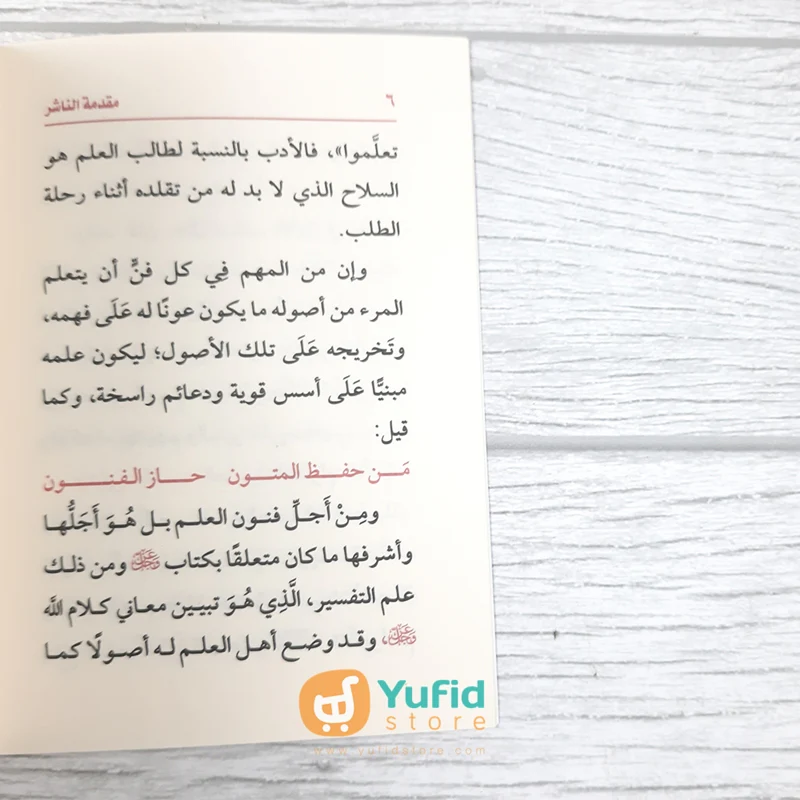 ٦ مقدمة الناشر
تعلَّموا»، فالأدب بالنسبة لطالب العلم هو
السلاح الذي لا بد له من تقلده أثناء رحلة
الطلب.
وإن من المهم فِي كل فنٍّ أن يتعلم
المرء من أصوله ما يكون عونًا له عَلَى فهمه،
وتَخريجه عَلَى تلك الأصول؛ ليكون علمه
مبنيًّا عَلَى أسس قوية ودعائم راسخة، وكما
قيل:
مَـن حفـظ المتـون حـاز الـفنـون
ومِنْ أَجـلِّ فنون العلـم بـل هُـوَ أَجَلُّهـا
وأشرفها ما كان متعلقًا بكتاب عَزَّوَجَلَّ ومن ذلـك
علم التفسير، الَّذِي هُـوَ تبيـين معاني كلام اللَّه
عَزَّوَجَلَّ، وقـد وضـع أهـل العلـم لـه أصـولًا كمـا
Yufid
store
www.yufidstore.com